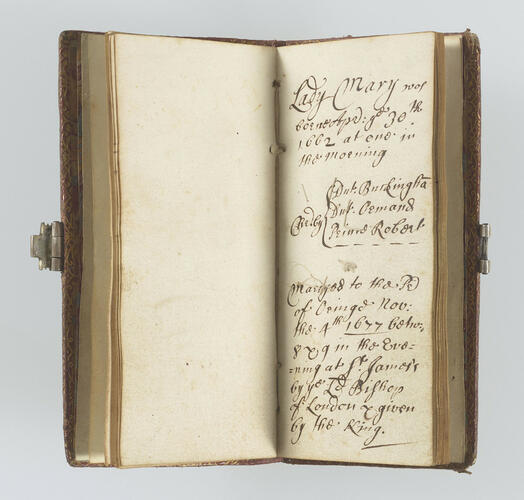 Lady Mary was
borne Apr: ye 30th
1662 at one in
the Morning
Duk: Buckingha
Duk: Ormand
Prince Robert
Marryed to the P
of Oringe Nov:
the 4th 1677 betw:
8 & 9 in the Eve-
-ning at St James's
by ye Ld Bishop
of London & given
by the King.